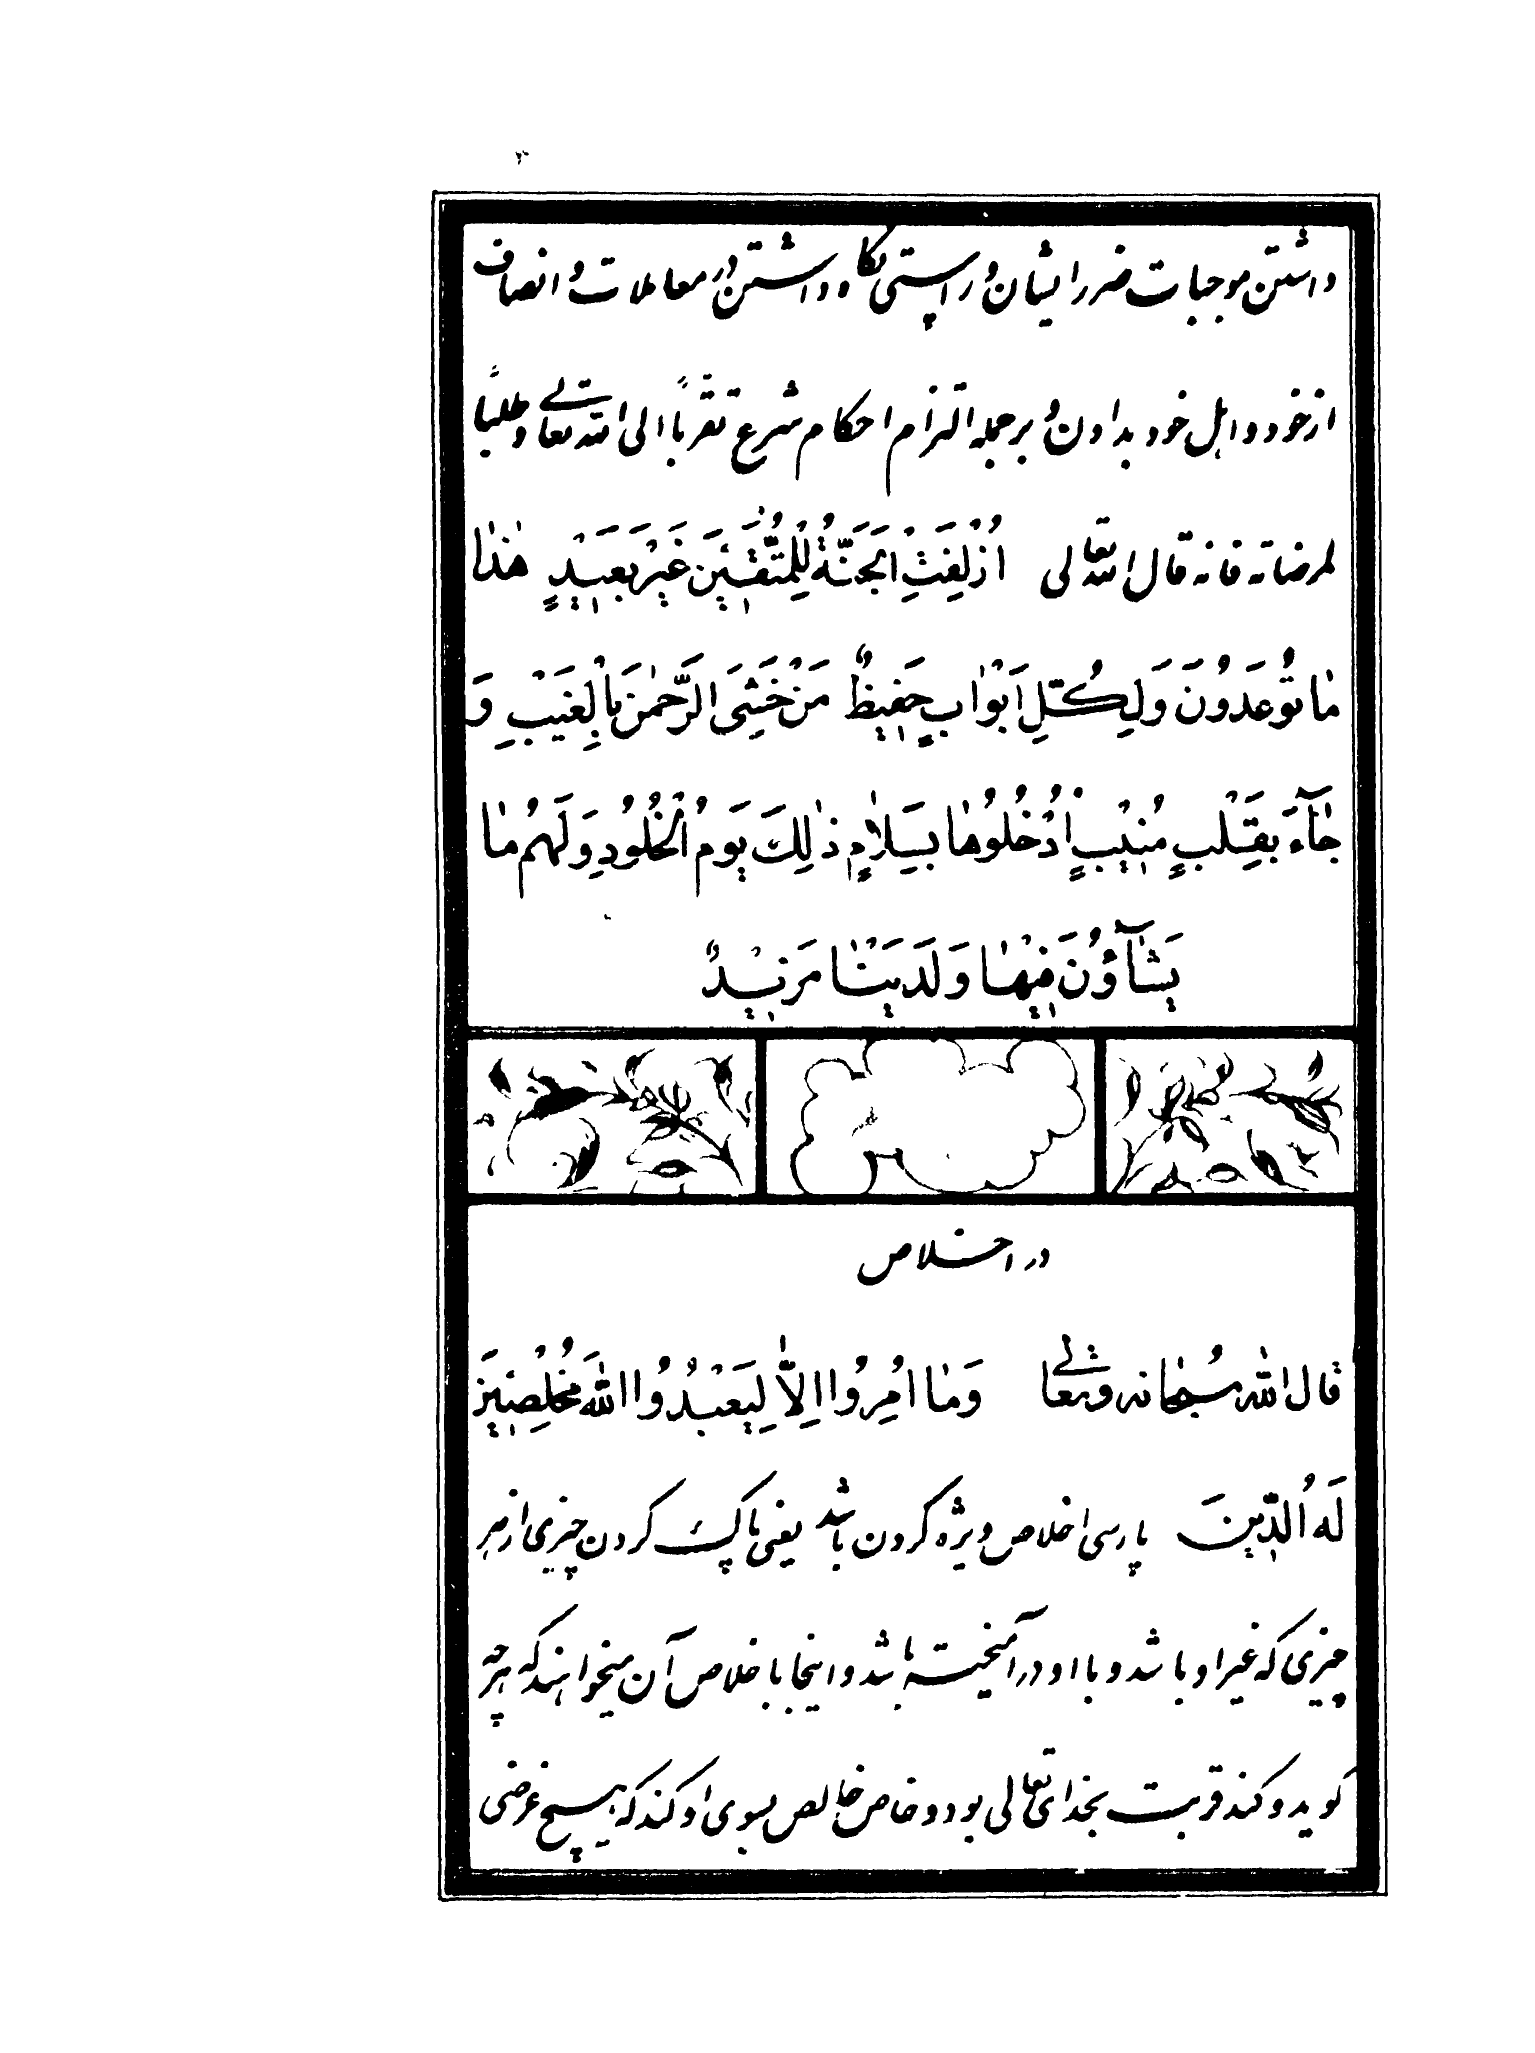 داشتن موجبات ضرر ایشان و راستی نگاه داشتن در معاملات و انصاف
از خود و اهل خود بدادن و بر جمله التزام احکام شرع تقرباً الی الله تعالی و طلباً
لمرضاته فانه قال الله تعالی اُزْلِفَتِ الْجَنَّةُ لِلْمُتَّقینَ غَیْرَ بَعیدٍ هٰذٰا
مٰا تُوعَدُونَ وَلِکُلِّ اَوّٰابٍ حَفیظٌ مَنْ خَشِیَ الرَّحْمٰنَ بِالْغَیْبِ وَ
جٰآءَ بِقَلْبٍ مُنیبٍ اُدْخُلُوهٰا بِسَلاٰمٍ ذٰلِکَ یَوْمُ الْخُلُودِ وَلَهُمْ مٰا
یَشٰآؤُنَ فیهٰا وَلَدَیْنٰا مَزیدٌ
در اخلاص
قال الله سُبحٰانه و تعالی وَمٰا اُمِرُوا اِلاّٰ لِیَعْبُدُوا اللهَ مُخْلِصینَ
لَهُ الدّینَ پارسی اخلاص ویژه کردن باشد یعنی پاک کردن چیزی از هر
چیزی که غیر او باشد و با او درآمیخته باشد و اینجا باخلاص آن میخواهند که هرچه
گوید و کند قربت بخدای تعالی بود و خاص خالص بسوی او کند که هیچ غرضی